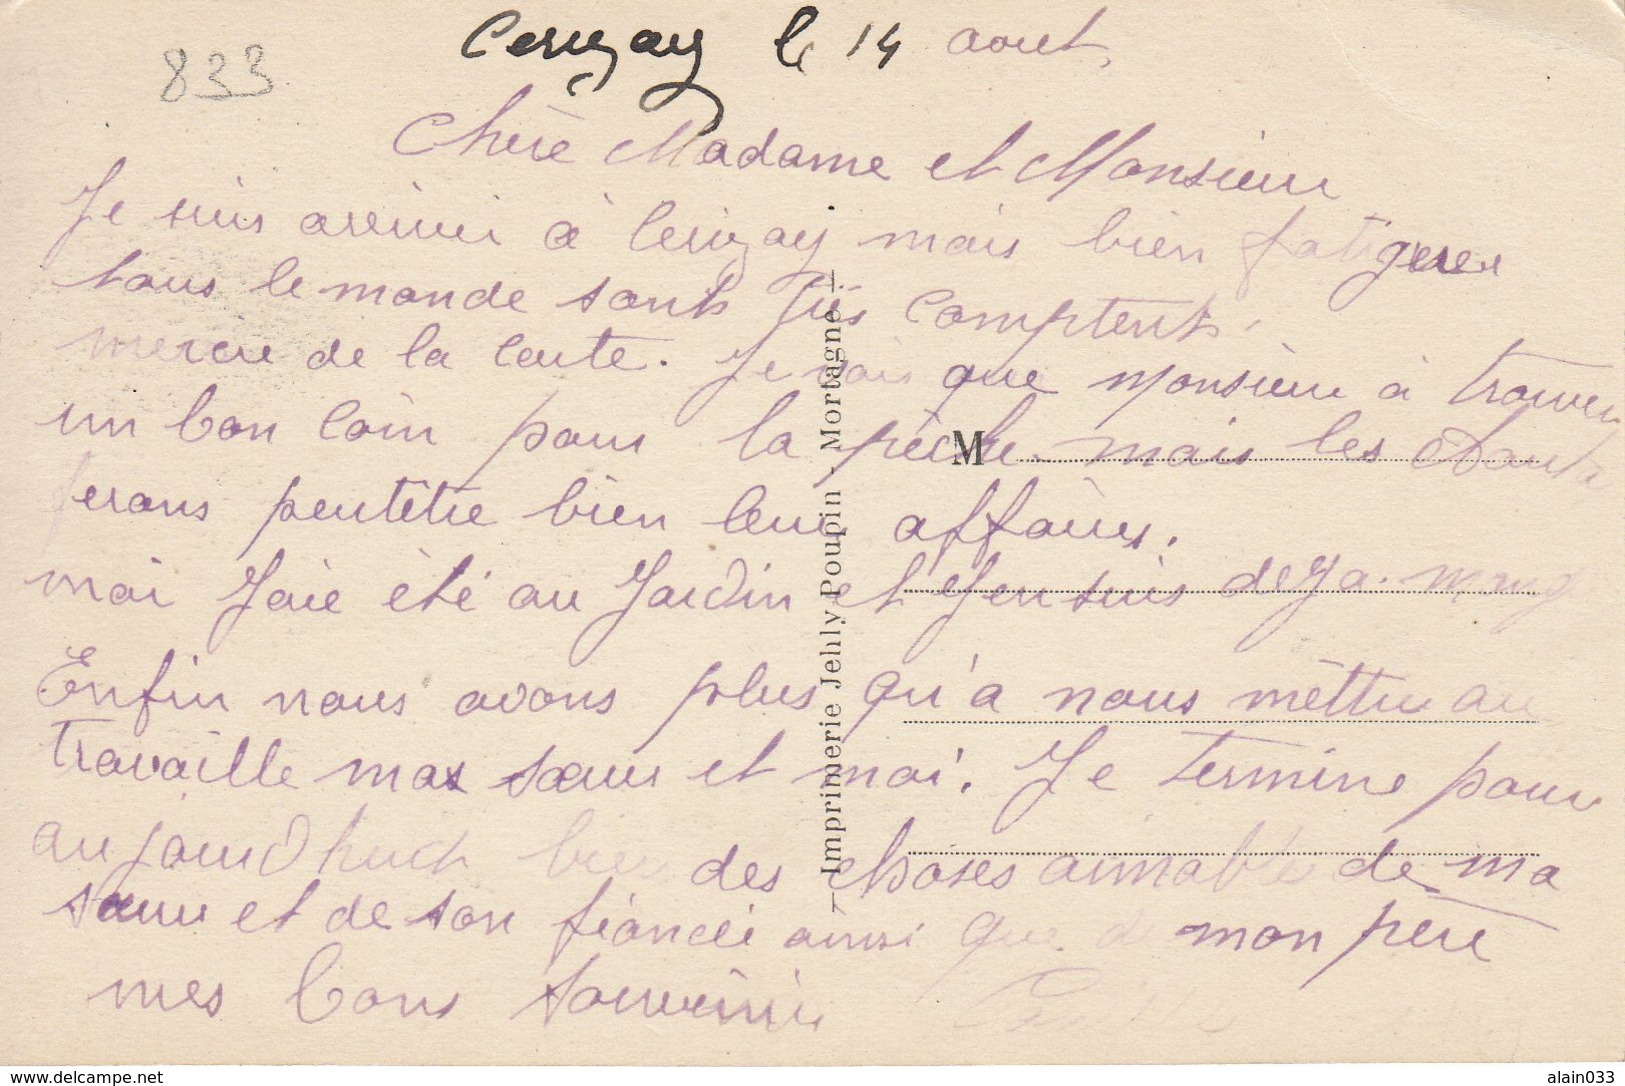 833
Cerizay le 14 aout,
Chère Madame et Monsieur
Je suis arrivei à Cerizay mais bien fatiguer
tous le monde sont très comptent.
mercie de la carte. Je vois que Monsieur à trouver
un bon coin pour la pèche. mais les
ferons peutêtre bien leur affaires.
moi Jaie été au Jardin et Jen suis deja.
Enfin nous avons plus qu'a nous mèttre au
travaille soeur et moi. Je termine pour
aujourdhuch bien des choses aimable de ma
soeur et de son fiancéi ainsi que de mon père
mes bons souvenir
M
— Imprimerie Jehly Poupin - Mortagne —
www.delcampe.net
alain033